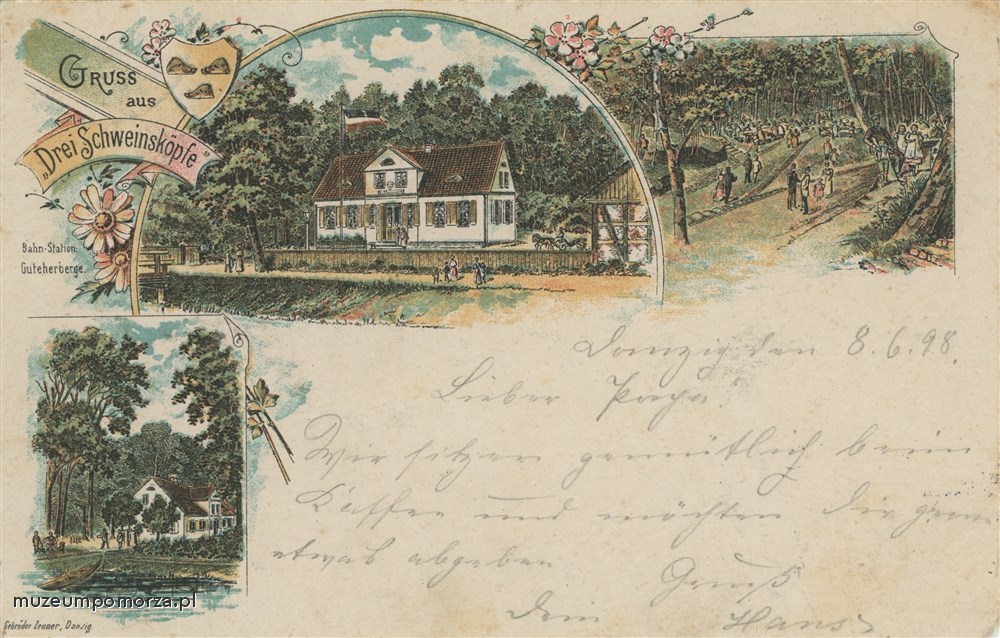 GRUSS
aus
„Drei Schweinsköpfe"
Bahn-Station:
Guteherberge.
Danzig den 8.6.98.
Lieber Papa
Wir sitzen gemütlich beim
Kaffee und möchten Dir gern
etwas abgeben
Gruß
Dein Hans
muzeumpomorza.pl
Gebrüder Zeuner, Danzig.